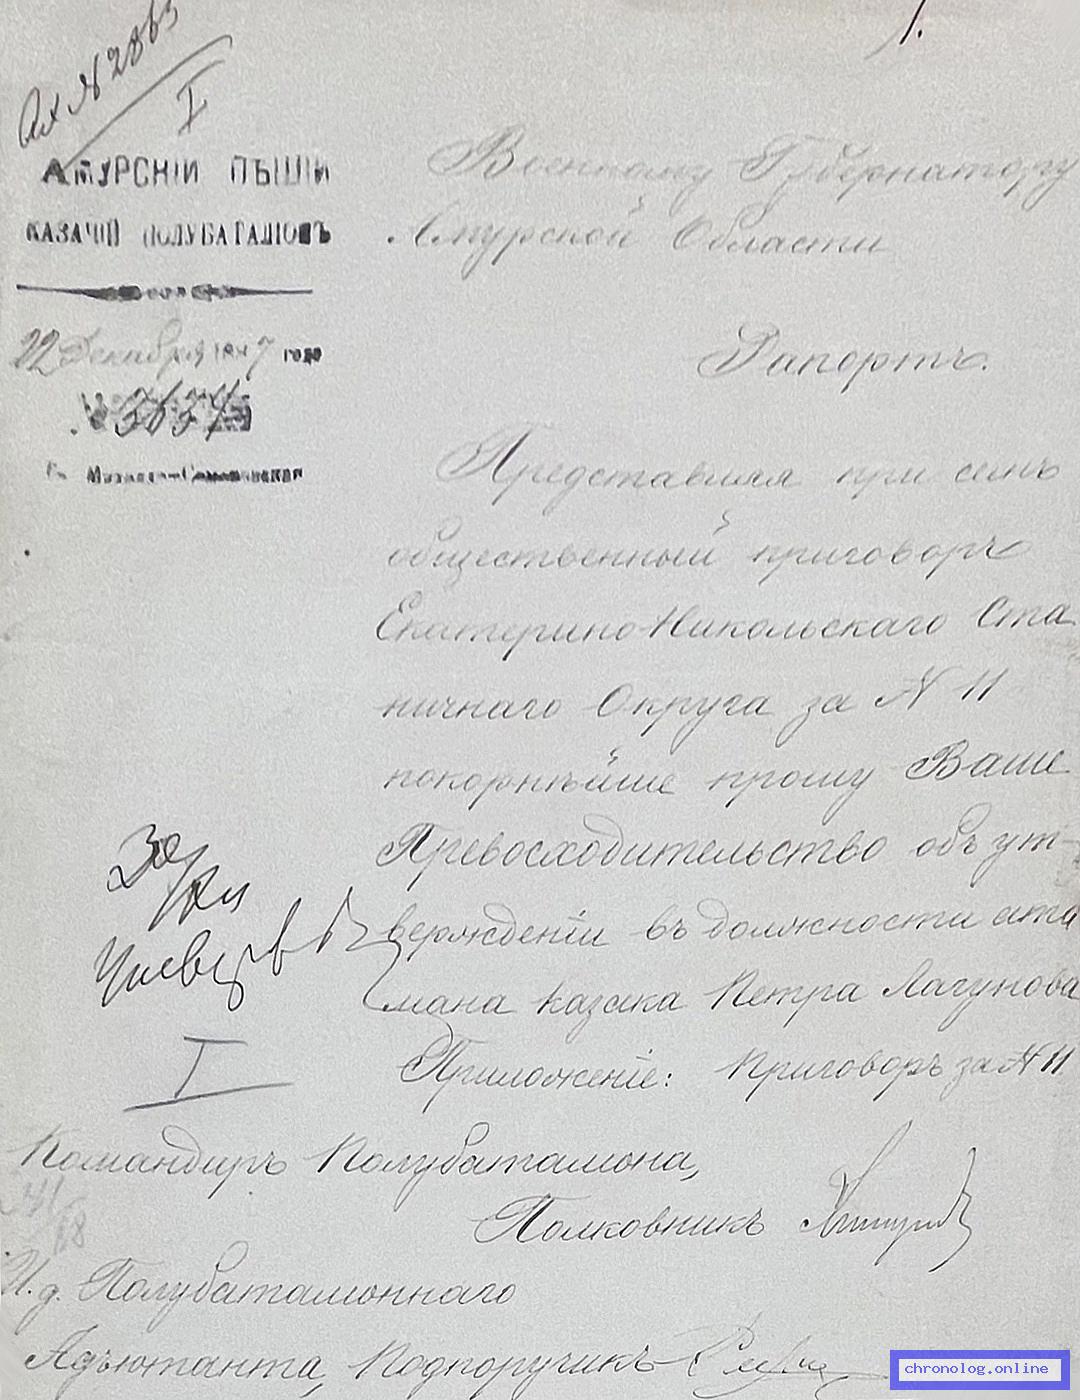 1.
Вх № 2863
I
АМУРСКІЙ ПѢШІЙ
КАЗАЧІЙ ПОЛУБАТАЛІОНЪ
22 Декабря 1897 года
№ 3634
Военному Губернатору
Амурской Области
Рапортъ.
Представляя при семъ
общественный приговоръ
Екатерино-Никольскаго Ста
ничнаго Округа за № 11
покорнѣйше прошу Ваше
Превосходительство объ ут-
вержденіи въ должности ата
мана казака Петра Лагунова
Приложеніе: Приговоръ за № 11
I
Командиръ Полубаталіона,
Полковникъ
И. д. Полубаталіоннаго
Адъютанта, Подпоручикъ
chronolog.online